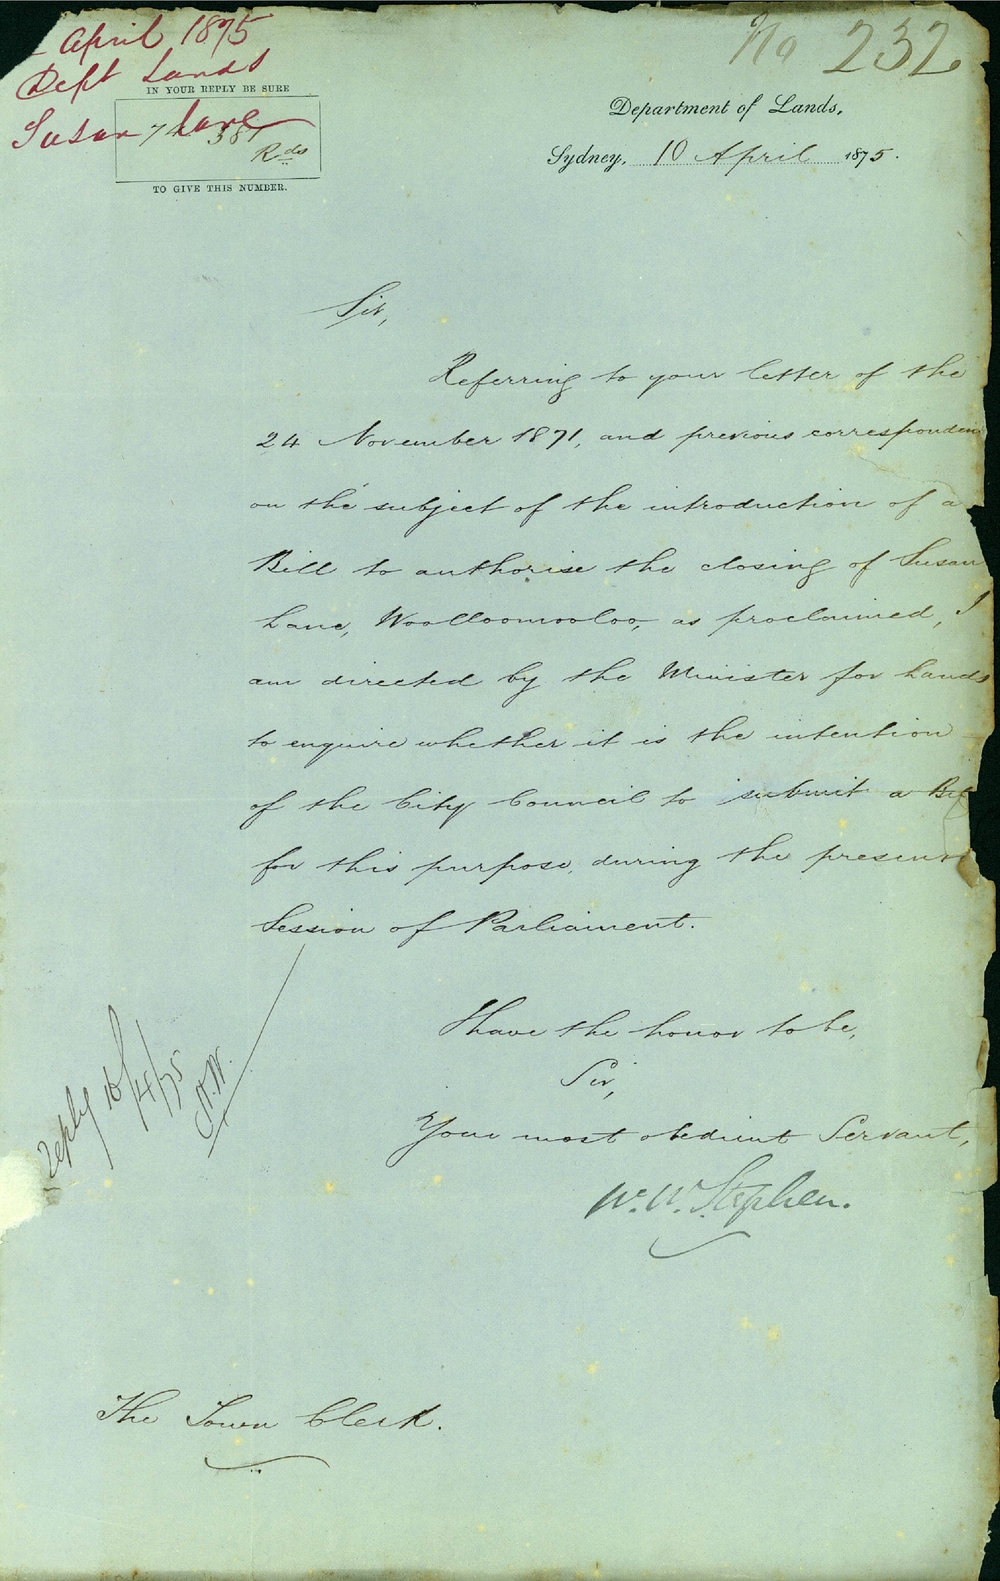 April 1875
Dept Lands
Susan Lane
No 232
IN YOUR REPLY BE SURE
74 381
Rds
TO GIVE THIS NUMBER.
Department of Lands,
Sydney, 10 April 1875.
Sir,
Referring to your letter of the
24 November 1871, and previous corresponden
on the subject of the introduction of a
Bill to authorise the closing of Susan
Lane, Woolloomooloo, as proclaimed, I
am directed by the Minister for Lands
to enquire whether it is the intention
of the City Council to submit a Bil
for this purpose, during the present
Session of Parliament.
I have the honor to be,
Sir,
Your most obedient Servant,
W. W. Stephen.
reply 16/4/75
The Town Clerk.